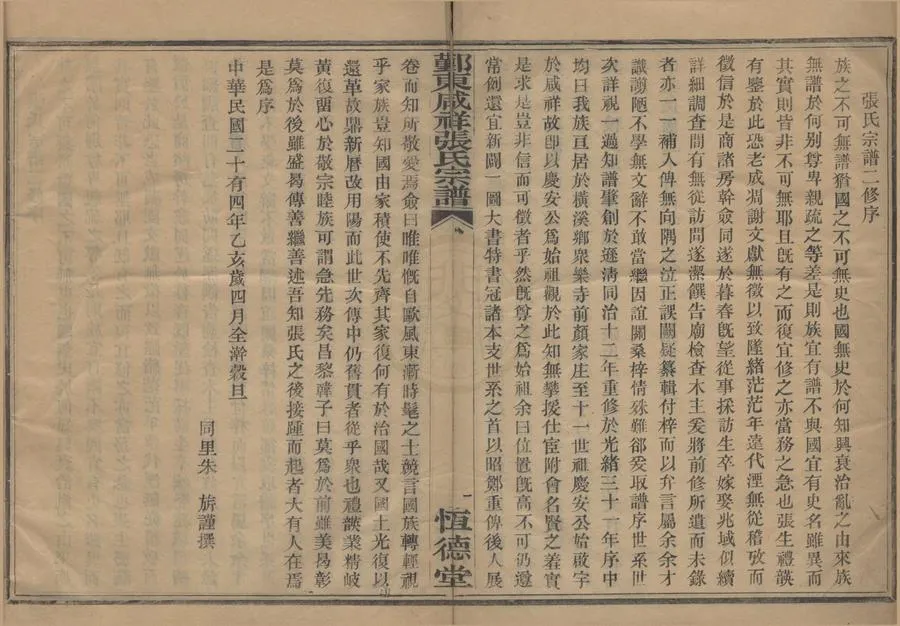 張氏宗譜二修序
族之不可無譜猶國之不可無史也國無史於何知興衰治亂之由來族
無譜於何別尊卑親疏之等差是則族宜有譜不與國宜有史名雖異而
其實則皆非不可無耶且既有之而復宜修之亦當務之急也張生禮䪺
有鑒於此恐老成凋謝文獻無徵以致墜緒茫茫年遠代湮無從稽攷而
徵信於是商諸房幹僉同遂於暮春既望從事採訪生卒嫁娶兆域似續
詳細調查間有無從訪問遂潔饌告廟檢查木主爰將前修所遺而未錄
者亦一一補入俾無向隅之泣正誤闕疑纂輯付梓而以弁言屬余余才
識謭陋不學無文辭不敢當繼因誼關桑梓情殊難郤爰取譜序世系世
次詳視一過知譜肇創於遜淸同治十二年重修於光緒三十一年序中
均曰我族亙居於橫溪鄉衆樂寺前顏家庄至十一世祖慶安公始啟宇
於咸祥故卽以慶安公爲始祖觀於此知無攀援仕宦附會名賢之羞實
是求是豈非信而可徵者乎然既尊之爲始祖余曰位置既高不可仍遵
常例還宜新闢一圖大書特書冠諸本支世系之首以昭鄭重俾後人展
鄞東咸祥張氏宗譜
一
恆德堂
卷而知所敬愛焉僉曰唯唯慨自歐風東漸時髦之士競言國族轉輕視
乎家族豈知國由家積使不先齊其家復何有於治國哉又國土光復以
還革故鼎新曆改用陽而此世次傳中仍舊貫者從乎衆也禮䪺業精岐
黃復畱心於敬宗睦族可謂急先務矣昌黎韓子曰莫爲於前雖美曷彰
莫爲於後雖盛曷傳善繼善述吾知張氏之後接踵而起者大有人在焉
是爲序
中華民國二十有四年乙亥歲四月全澣穀旦
同里朱 旂謹撰